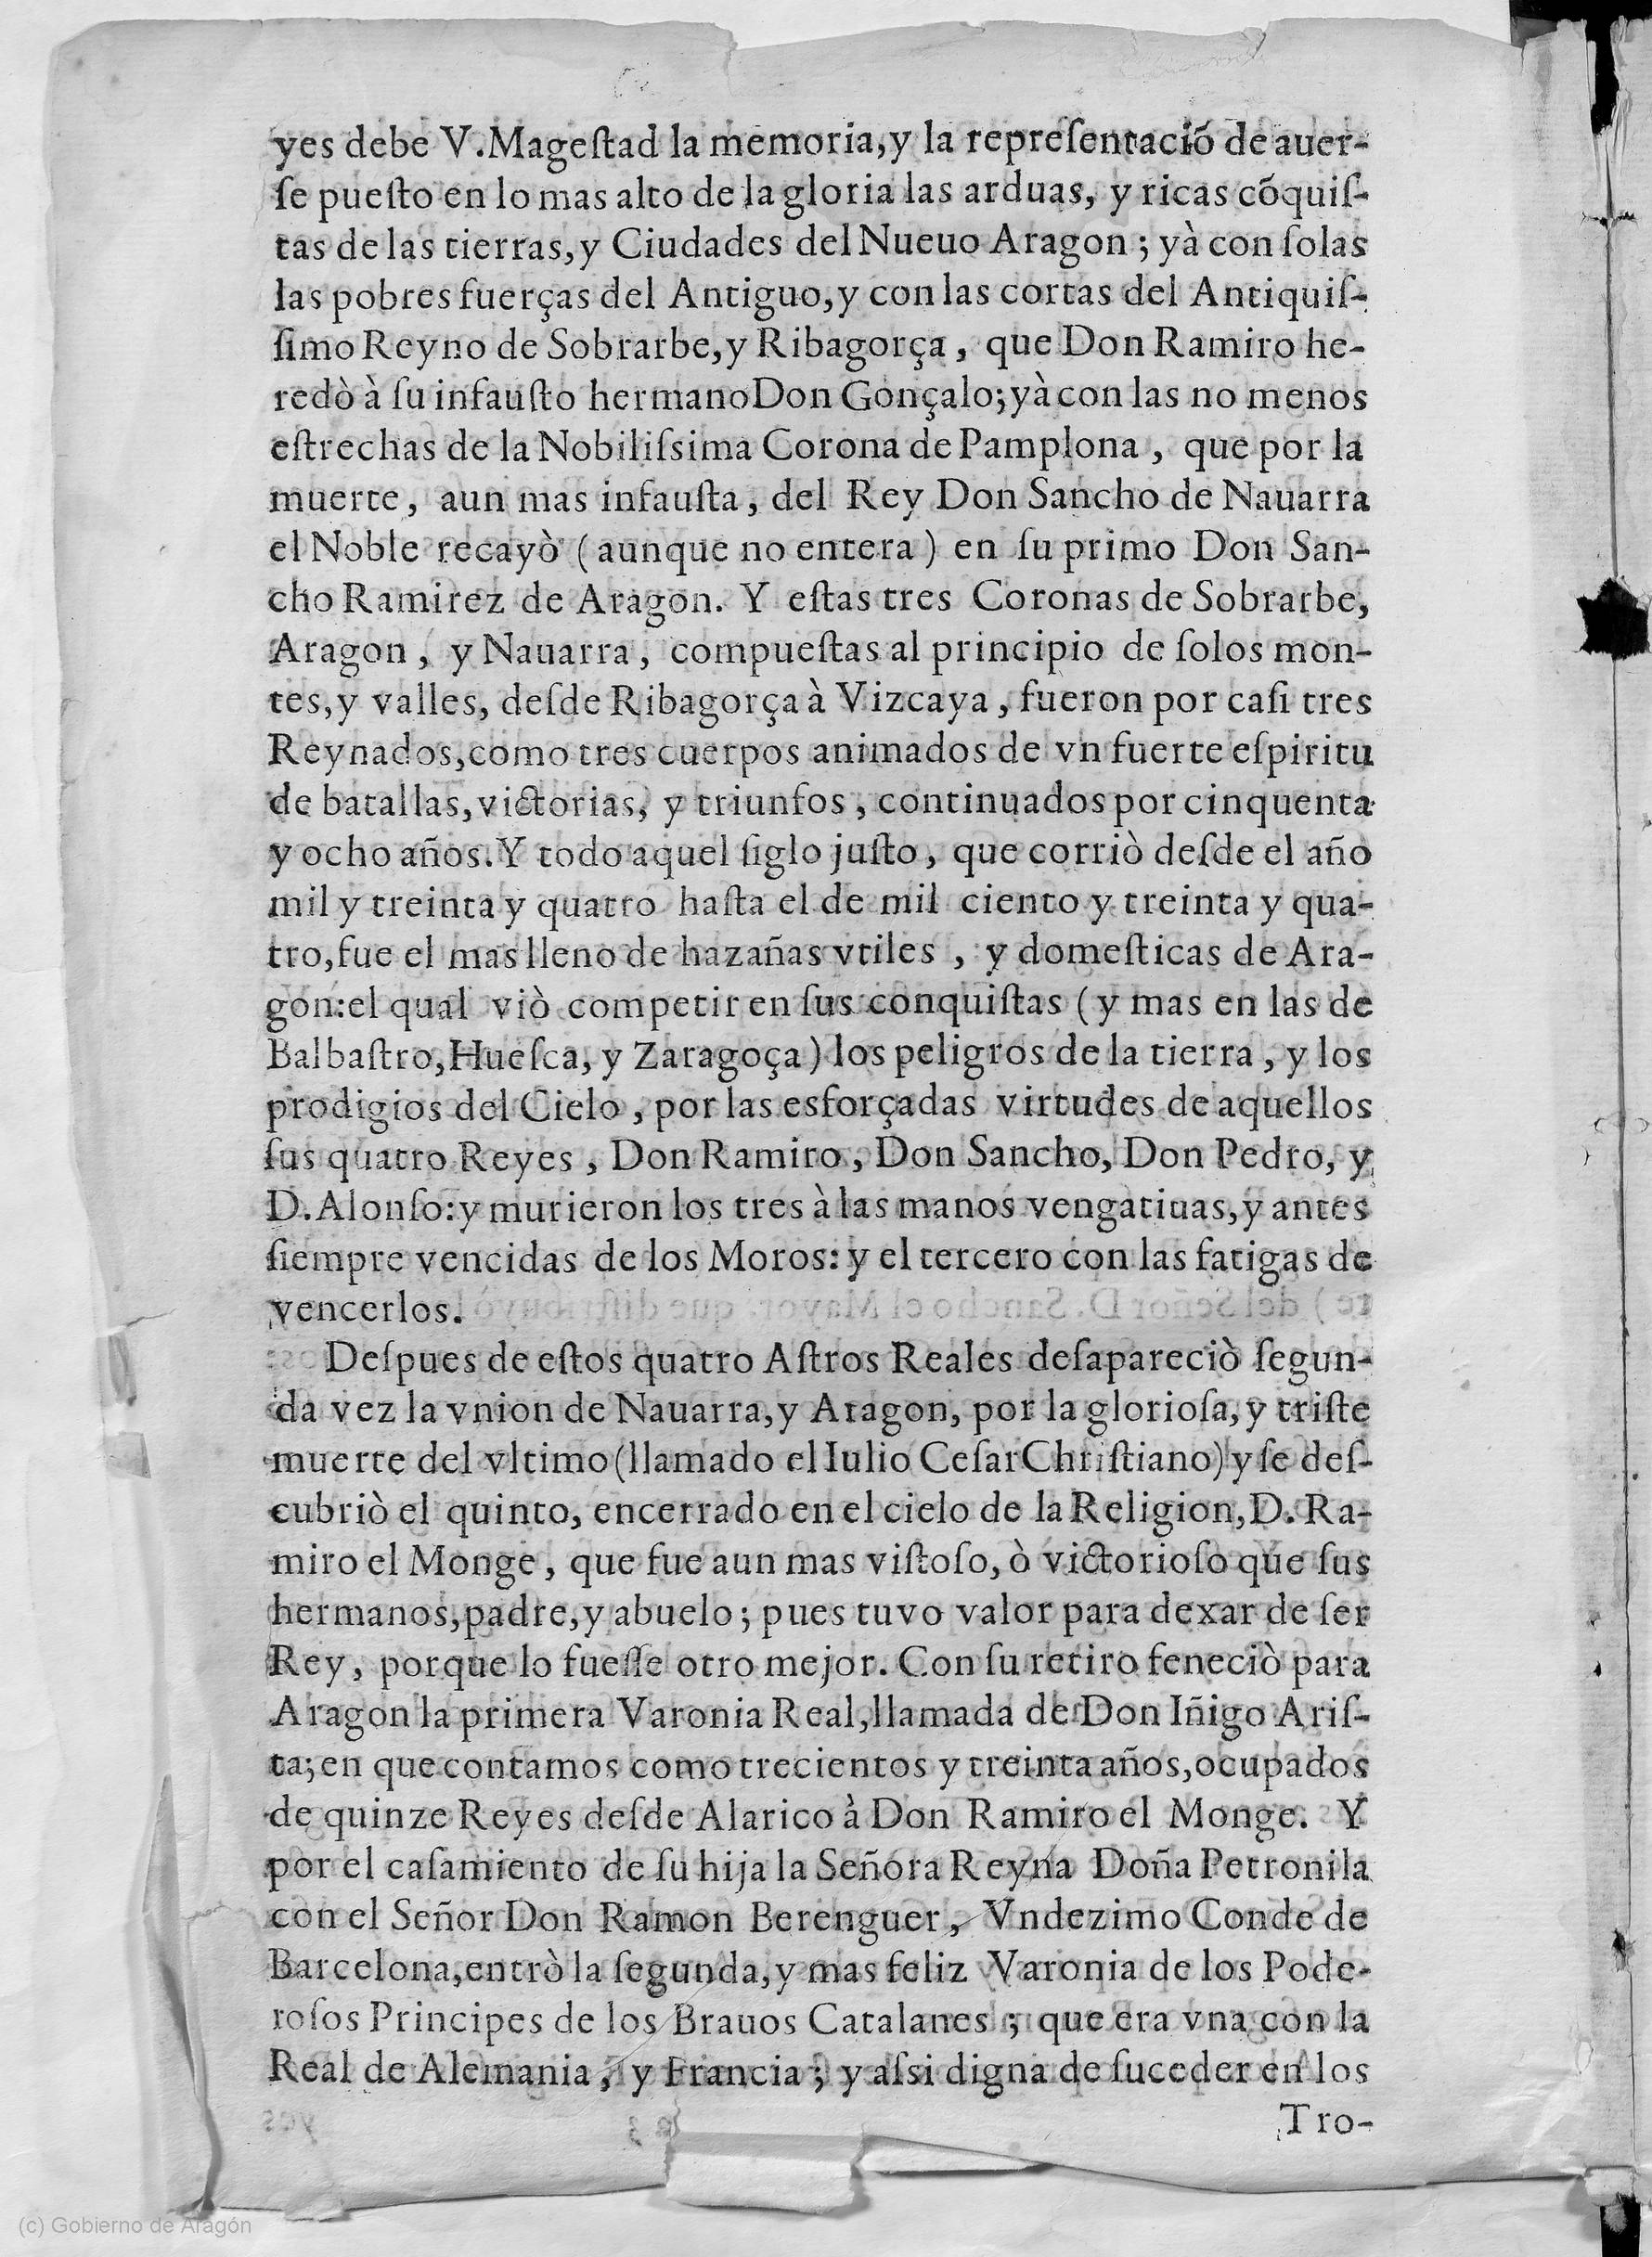 yes debe V.Mageſtad la memoria,y la repreſentació de auer-
ſe pueſto en lo mas alto de la gloria las arduas, y ricas cõquiſ-
tas de las tierras,y Ciudades del Nueuo Aragon; yà con ſolas
las pobres fuerças del Antiguo,y con las cortas del Antiquiſ-
ſimo Reyno de Sobrarbe,y Ribagorça, que Don Ramiro he-
redò à ſu infauſto hermano Don Gonçalo;yà con las no menos
eſtrechas de la Nobiliſsima Corona de Pamplona, que por la
muerte, aun mas infauſta, del Rey Don Sancho de Nauarra
el Noble recayò (aunque no entera) en ſu primo Don San-
cho Ramirez de Aragon. Y eſtas tres Coronas de Sobrarbe,
Aragon, y Nauarra, compueſtas al principio de ſolos mon-
tes,y valles, deſde Ribagorça à Vizcaya, fueron por caſi tres
Reynados,como tres cuerpos animados de vn fuerte eſpiritu
de batallas,victorias, y triunfos, continuados por cinquenta
y ocho años.Y todo aquel ſiglo juſto, que corriò deſde el año
mil y treinta y quatro haſta el de mil ciento y treinta y qua-
tro,fue el mas lleno de hazañas vtiles, y domeſticas de Ara-
gon:el qual viò competir en ſus conquiſtas (y mas en las de
Balbaſtro,Hueſca, y Zaragoça) los peligros de la tierra, y los
prodigios del Cielo, por las esforçadas virtudes de aquellos
ſus quatro Reyes, Don Ramiro, Don Sancho, Don Pedro, y
D.Alonſo:y murieron los tres à las manos vengatiuas,y antes
ſiempre vencidas de los Moros: y el tercero con las fatigas de
vencerlos.
Deſpues de eſtos quatro Aſtros Reales deſapareciò ſegun-
da vez la vnion de Nauarra,y Aragon, por la glorioſa,y triſte
muerte del vltimo (llamado el Iulio Ceſar Chriſtiano) y ſe deſ-
cubriò el quinto, encerrado en el cielo de la Religion,D.Ra-
miro el Monge, que fue aun mas viſtoſo, ò victorioſo que ſus
hermanos,padre,y abuelo; pues tuvo valor para dexar de ſer
Rey, porque lo fueſſe otro mejor. Con ſu retiro feneciò para
Aragon la primera Varonia Real,llamada de Don Iñigo Ariſ-
ta;en que contamos como trecientos y treinta años,ocupados
de quinze Reyes deſde Alarico à Don Ramiro el Monge. Y
por el caſamiento de ſu hija la Señora Reyna Doña Petronila
con el Señor Don Ramon Berenguer, Vndezimo Conde de
Barcelona,entrò la ſegunda,y mas feliz Varonia de los Pode-
roſos Principes de los Brauos Catalanes; que era vna con la
Real de Alemania, y Francia; y aſsi digna de ſuceder en los
Tro-
(c) Gobierno de Aragón